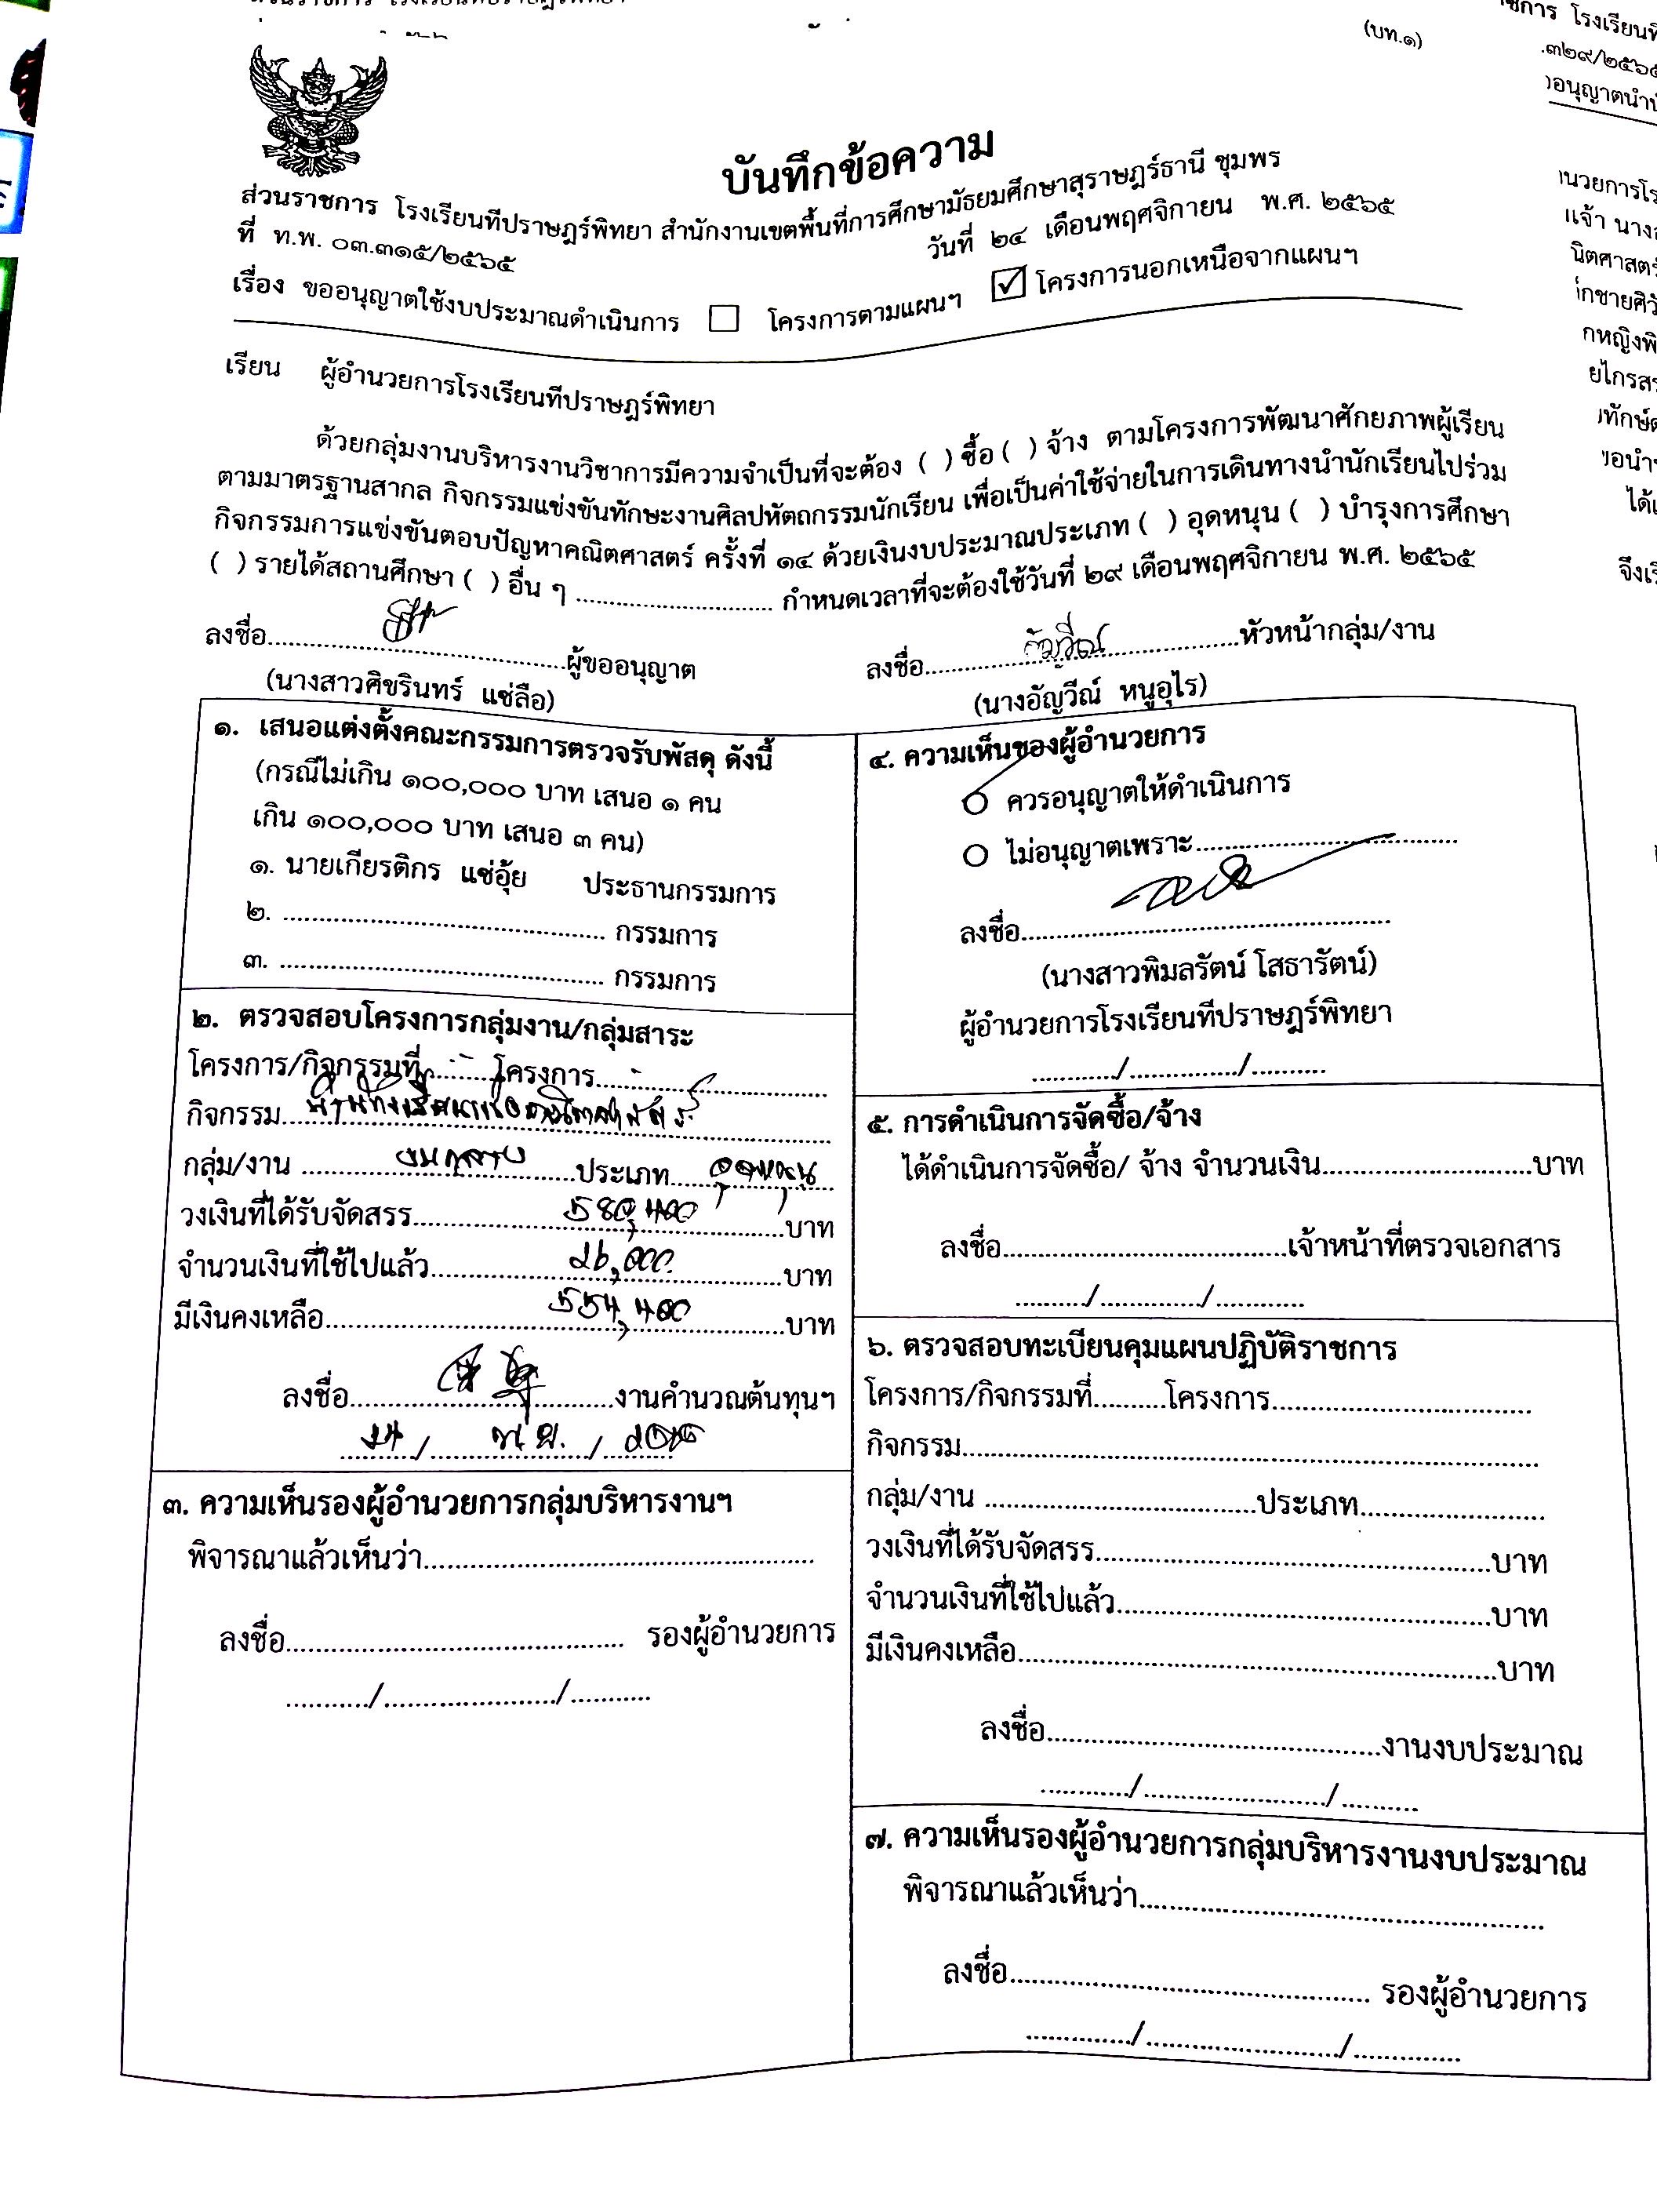 (บท.๑)
บันทึกข้อความ
ส่วนราชการ โรงเรียนทีปราษฎร์พิทยา สำนักงานเขตพื้นที่การศึกษามัธยมศึกษาสุราษฎร์ธานี ชุมพร
ที่ ท.พ. ๐๓.๓๑๕/๒๕๖๕ วันที่ ๒๔ เดือนพฤศจิกายน พ.ศ. ๒๕๖๕
เรื่อง ขออนุญาตใช้งบประมาณดำเนินการ ☐ โครงการตามแผนฯ ☑ โครงการนอกเหนือจากแผนฯ
เรียน ผู้อำนวยการโรงเรียนทีปราษฎร์พิทยา
ด้วยกลุ่มงานบริหารงานวิชาการมีความจำเป็นที่จะต้อง ( ) ซื้อ ( ) จ้าง ตามโครงการพัฒนาศักยภาพผู้เรียน
ตามมาตรฐานสากล กิจกรรมแข่งขันทักษะงานศิลปหัตถกรรมนักเรียน เพื่อเป็นค่าใช้จ่ายในการเดินทางนำนักเรียนไปร่วม
กิจกรรมการแข่งขันตอบปัญหาคณิตศาสตร์ ครั้งที่ ๑๔ ด้วยเงินงบประมาณประเภท ( ) อุดหนุน ( ) บำรุงการศึกษา
( ) รายได้สถานศึกษา ( ) อื่น ๆ ........................ กำหนดเวลาที่จะต้องใช้วันที่ ๒๙ เดือนพฤศจิกายน พ.ศ. ๒๕๖๕
ลงชื่อ........................ผู้ขออนุญาต ลงชื่อ........................หัวหน้ากลุ่ม/งาน
(นางสาวศิขรินทร์ แซ่ลือ) (นางอัญวีณ์ หนูอุไร)
๑. เสนอแต่งตั้งคณะกรรมการตรวจรับพัสดุ ดังนี้
(กรณีไม่เกิน ๑๐๐,๐๐๐ บาท เสนอ ๑ คน
เกิน ๑๐๐,๐๐๐ บาท เสนอ ๓ คน)
๑. นายเกียรติกร แซ่อุ้ย ประธานกรรมการ
๒. ........................ กรรมการ
๓. ........................ กรรมการ
๒. ตรวจสอบโครงการกลุ่มงาน/กลุ่มสาระ
โครงการ/กิจกรรมที่..........โครงการ........................
กิจกรรม........................
กลุ่ม/งาน งบกลาง ประเภท อุดหนุน
วงเงินที่ได้รับจัดสรร 580,400 บาท
จำนวนเงินที่ใช้ไปแล้ว 26,000 บาท
มีเงินคงเหลือ 554,400 บาท
ลงชื่อ........................งานคำนวณต้นทุนฯ
24 / พ.ย. / 2565
๓. ความเห็นรองผู้อำนวยการกลุ่มบริหารงานฯ
พิจารณาแล้วเห็นว่า........................
ลงชื่อ........................ รองผู้อำนวยการ
........../......................../..........
๔. ความเห็นของผู้อำนวยการ
ควรอนุญาตให้ดำเนินการ
ไม่อนุญาตเพราะ........................
ลงชื่อ........................
(นางสาวพิมลรัตน์ โสธารัตน์)
ผู้อำนวยการโรงเรียนทีปราษฎร์พิทยา
........../................/..........
๕. การดำเนินการจัดซื้อ/จ้าง
ได้ดำเนินการจัดซื้อ/ จ้าง จำนวนเงิน........................บาท
ลงชื่อ........................เจ้าหน้าที่ตรวจเอกสาร
........../............/............
๖. ตรวจสอบทะเบียนคุมแผนปฏิบัติราชการ
โครงการ/กิจกรรมที่..........โครงการ........................
กิจกรรม........................
กลุ่ม/งาน ........................ประเภท........................
วงเงินที่ได้รับจัดสรร........................บาท
จำนวนเงินที่ใช้ไปแล้ว........................บาท
มีเงินคงเหลือ........................บาท
ลงชื่อ........................งานงบประมาณ
............/......................../..........
๗. ความเห็นรองผู้อำนวยการกลุ่มบริหารงานงบประมาณ
พิจารณาแล้วเห็นว่า........................
ลงชื่อ........................ รองผู้อำนวยการ
............/......................../............